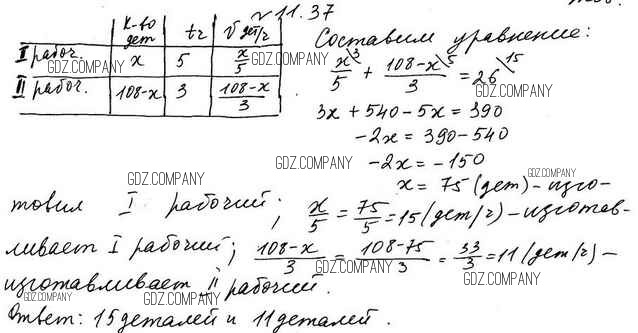 №11.37
к-во дет | t ч | V дет/ч
I рабоч. | x | 5 | x/5
II рабоч. | 108-x | 3 | (108-x)/3
Составим уравнение:
x/5 ^3 + (108-x)/3 ^5 = 26 ^15
3x + 540 - 5x = 390
-2x = 390 - 540
-2x = -150
x = 75 (дет) - изго-
товил I рабочий; x/5 = 75/5 = 15 (дет/ч) - изготав-
ливает I рабочий; (108-x)/3 = (108-75)/3 = 33/3 = 11 (дет/ч) -
изготавливает II рабочий.
Ответ: 15 деталей и 11 деталей.
GDZ.COMPANY
GDZ.COMPANY
GDZ.COMPANY
GDZ.COMPANY
GDZ.COMPANY
GDZ.COMPANY
GDZ.COMPANY
GDZ.COMPANY
GDZ.COMPANY
GDZ.COMPANY
GDZ.COMPANY
GDZ.COMPANY